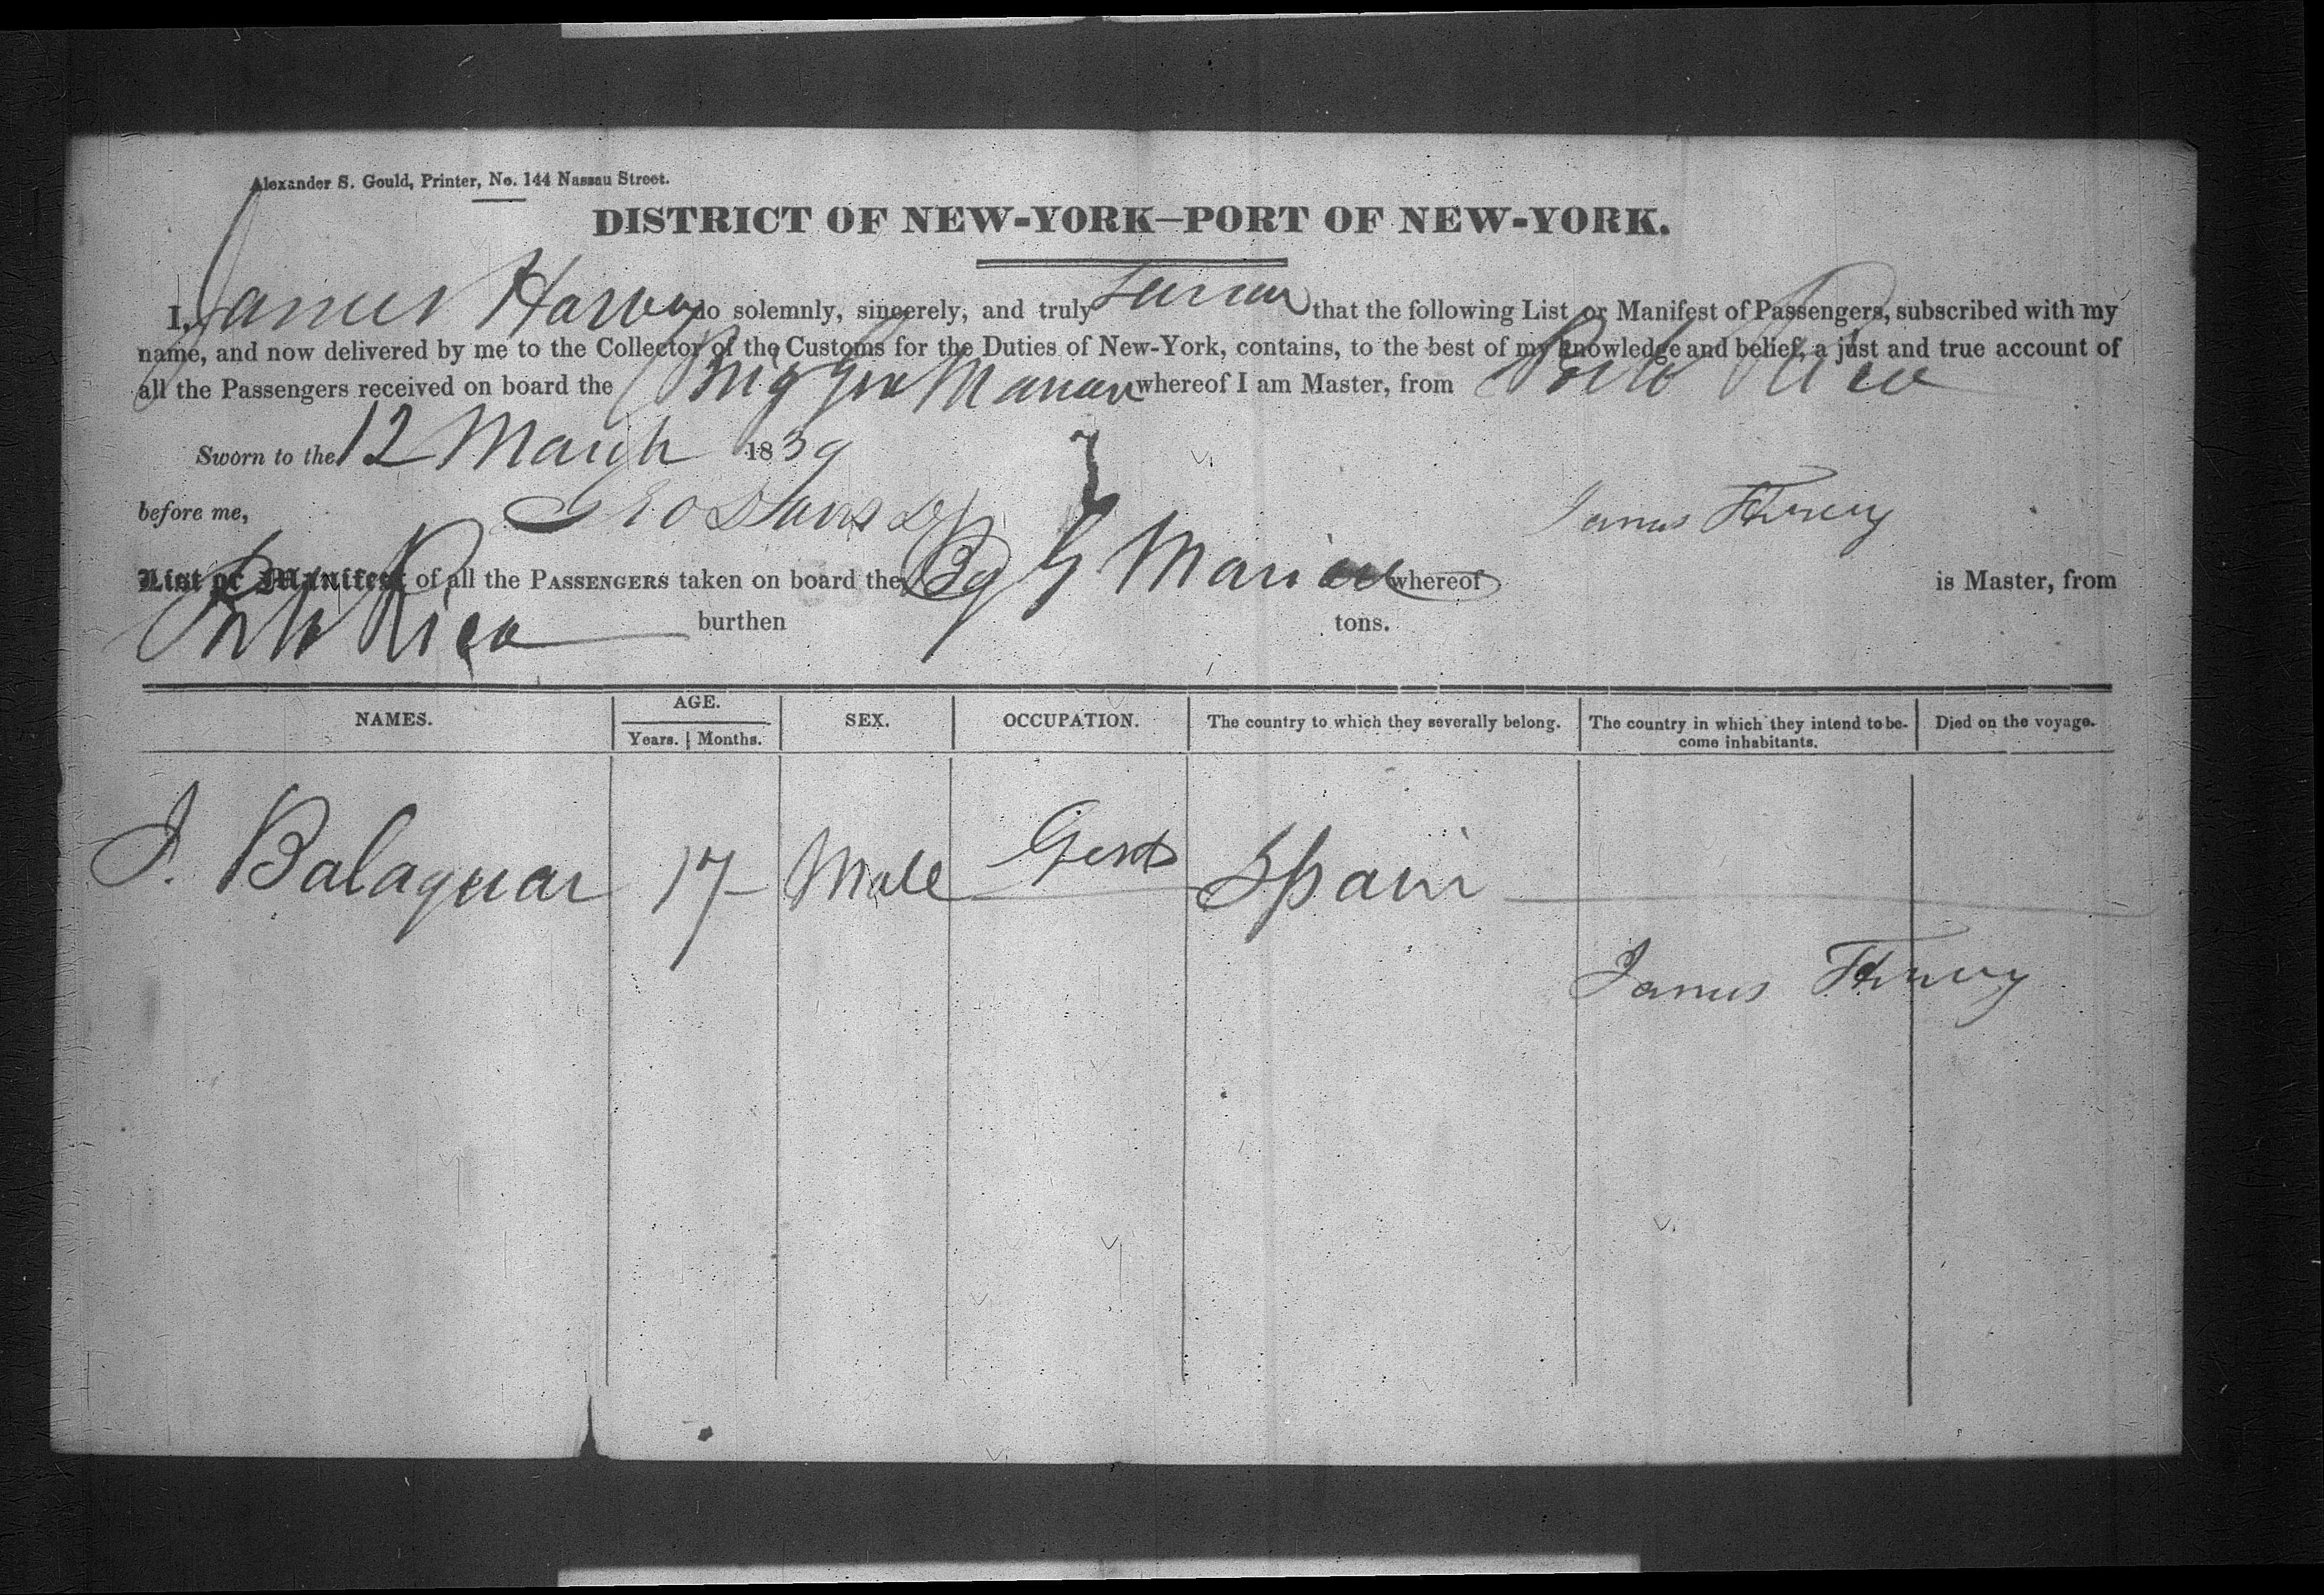 Alexander S. Gould, Printer, No. 144 Nassau Street.
DISTRICT OF NEW-YORK—PORT OF NEW-YORK.
I, James Harvey do solemnly, sincerely, and truly swear that the following List or Manifest of Passengers, subscribed with my
name, and now delivered by me to the Collector of the Customs for the Duties of New-York, contains, to the best of my knowledge and belief, a just and true account of
all the Passengers received on board the Brig whereof I am Master, from Porto Rico
Sworn to the 12 March 1839
before me, Geo Davis James Harvey
List or Manifest of all the PASSENGERS taken on board the Bg G Marian whereof is Master, from
Porto Rico burthen tons.
NAMES. AGE. SEX. OCCUPATION. The country to which they severally belong. The country in which they intend to be- Died on the voyage.
Years. Months. come inhabitants.
J. Balaguar 17 Male Gent Spain
James Harvey